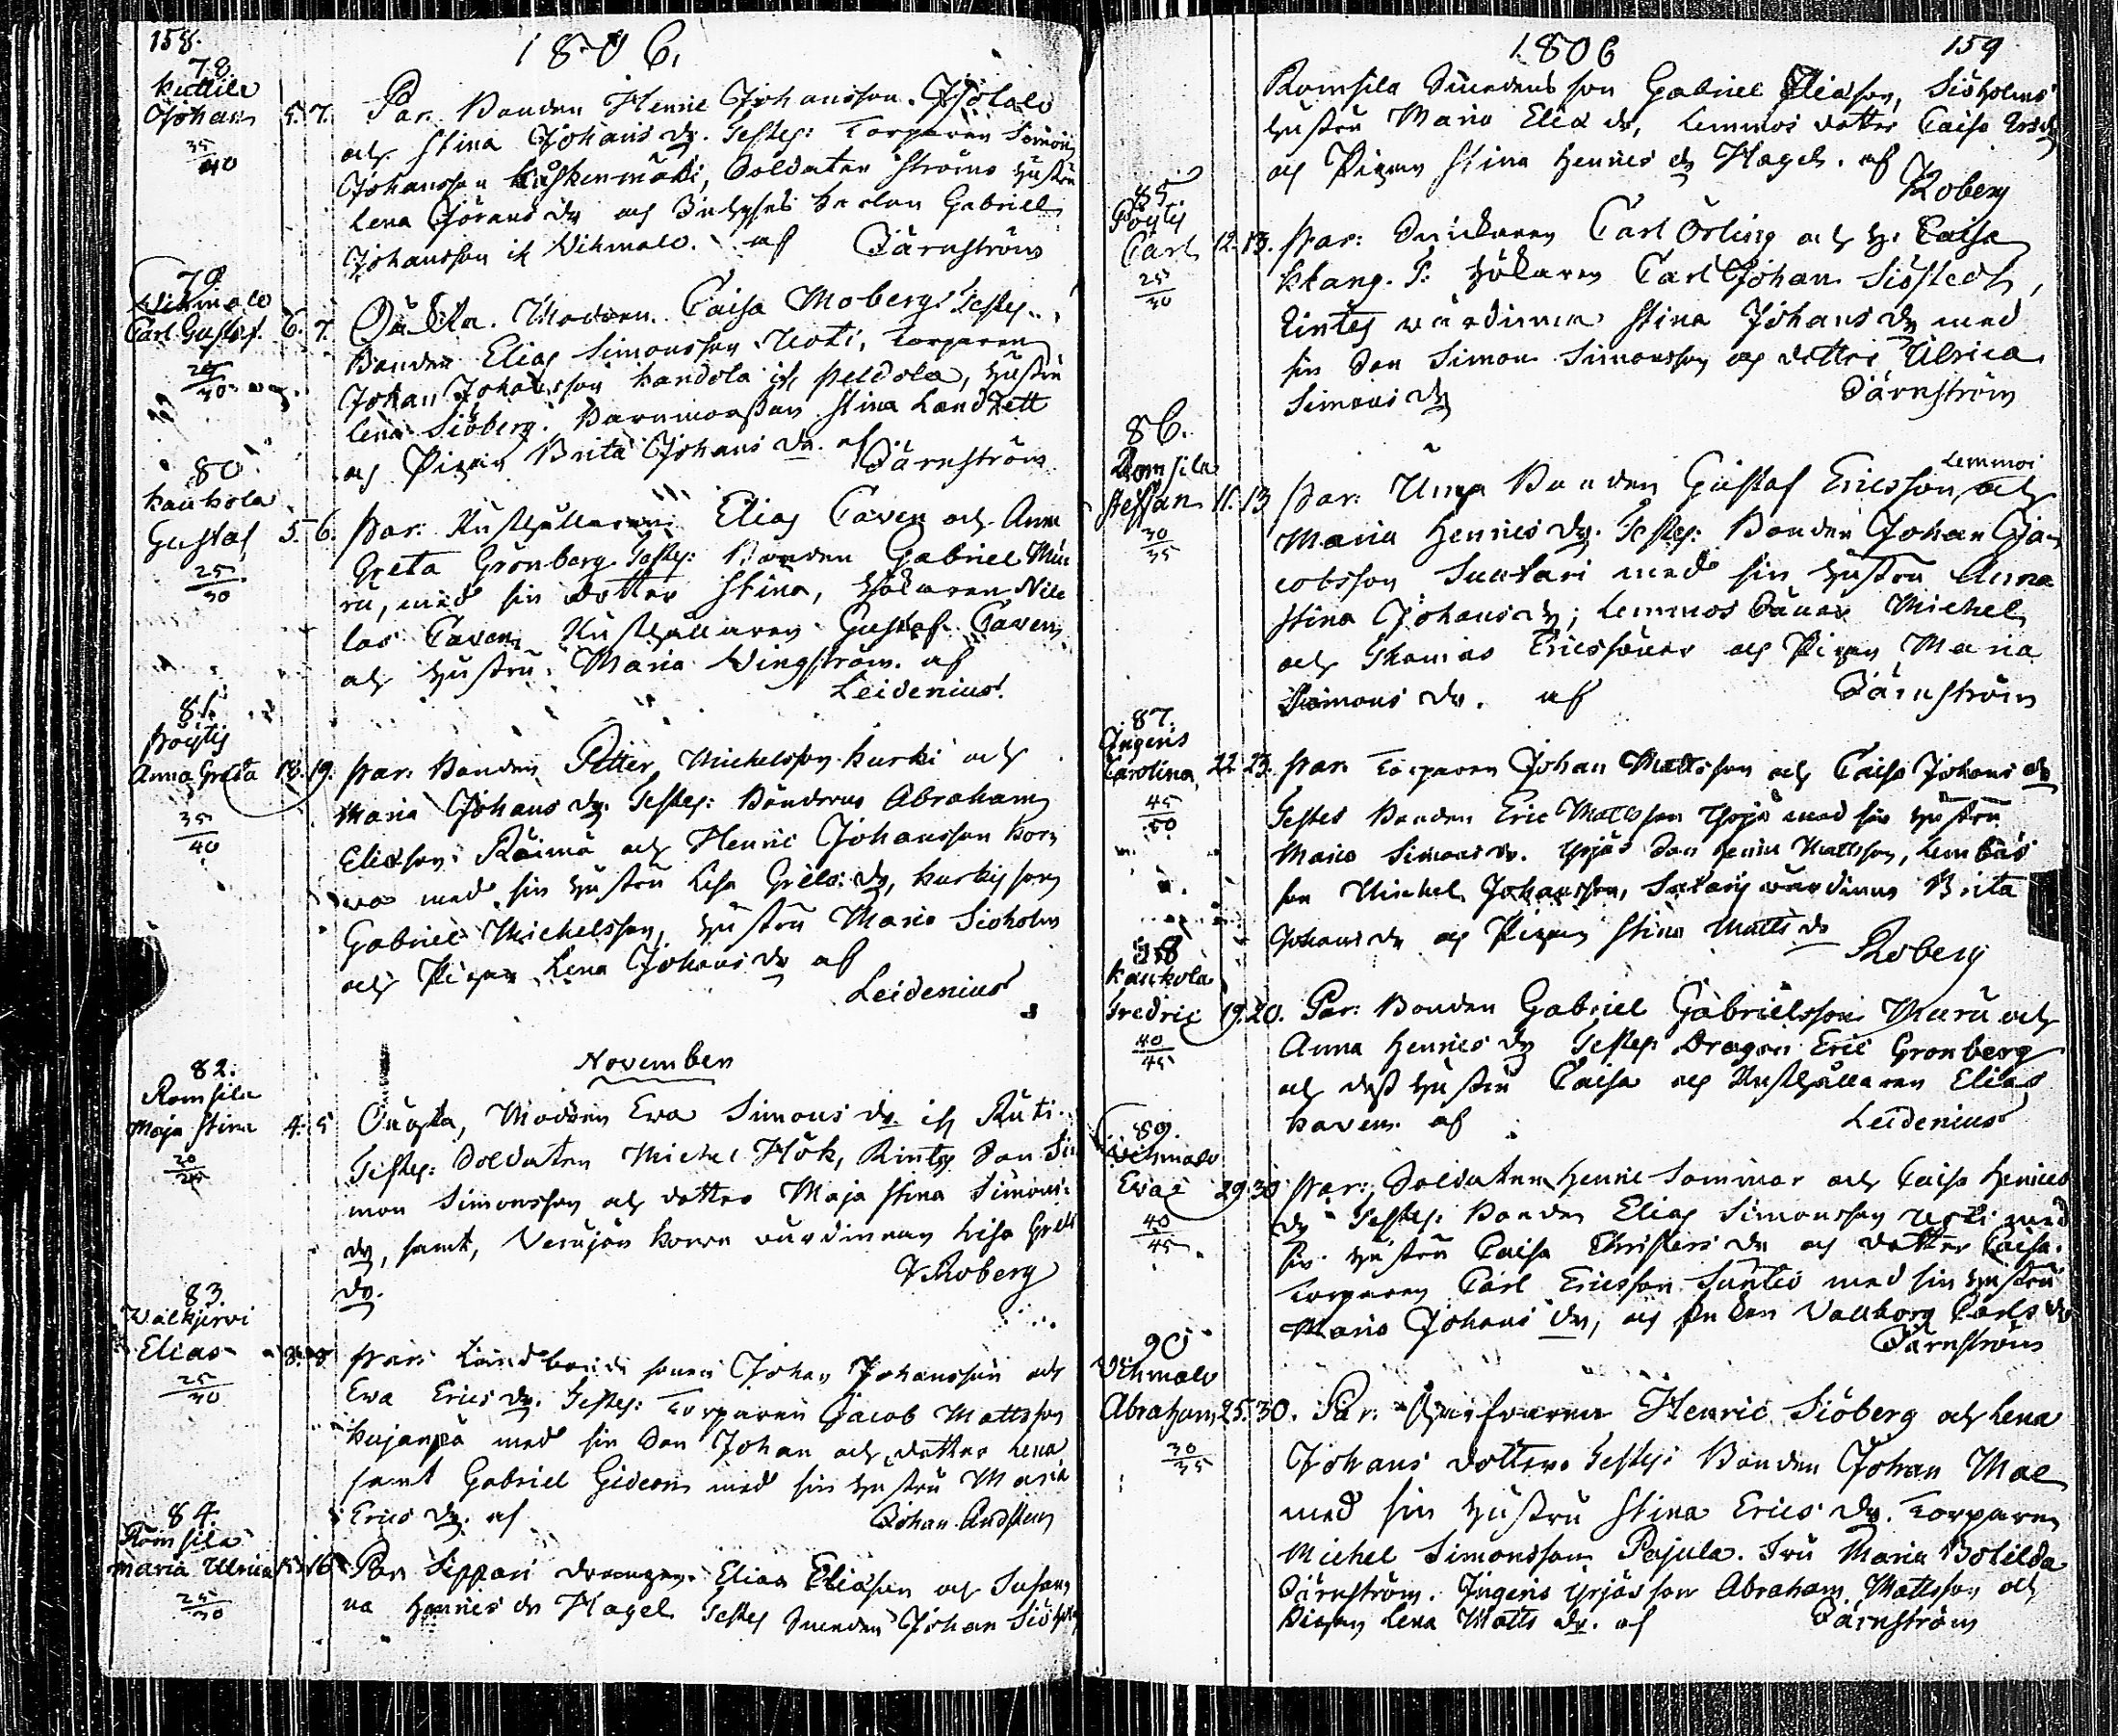 158.
1806.
78
Kuttila
Johan 5. 7. Par. Bonden Henric Johansson Isotalo
35
40
och Stina Johans dr. Testes: Torparen Simon
Johansson Kuskenmäki, Soldaten Ströms hustru
Lena Görans dr och Karlen Gabriel
Johansson if Vihmalo. af Tärnström
79
Vihmalo
Carl Gustaf. 6. 7. Oäkta. Modren Caisa Moberg. Testes.
25
30
Bonden Elias Simonsson Uoti, Torparen
Johan Johansson Handola if Peldola, hustru
Lena Siöberg. Barnmorskan Stina Landzett
och Pigan Brita Johans dr. af Tärnström
80
Kaukola
Gustaf 5. 6. Par: Rusthållaren Elias Caven och Anna
25
30
Greta Grönberg Testes: Bonden Gabriel Muu
ru, med sin dotter Stina, Hökaren Nic
las Caven, Rusthållaren Gustaf Caven
och hustru Maria Wingström. af
Leidenius.
81
Pöytis
Anna Greta 18. 19. Par. Bonden Petter Michelsson Kurki och
35
40
Maria Johans dr. Testes: Bönderne Abraham
Eliasson Räimä och Henric Johansson Kor
wa med sin hustru Lisa Grels dr, Kurkis son
Gabriel Michelsson, hustru Maria Sioholm
och Pigan Lena Johans dr af
Leidenius
November
82.
Romsila
Maja Stina 4. 5 Oägta, Modren Ewa Simons dr if Ruti.
20
25
Testes: Soldaten Michel Hök, Rintes Son Si
mon Simonsson och dotter Maja Stina Simons
dr, samt, Verujän Korwa värdinnan Lisa Grels
dr. Roberg
83
Walkjärvi
Elias 8. 8 Par: Landbonde sonen Johan Johansson och
25
30
Ewa Erics dr. Testes: Torparen Jacob Mattsson
Kujanpä med sin Son Johan och dotter Lena
samt Gabriel Gideon med sin hustru Maria
Erics dr. af Johan Andsten
84.
Romsila
Maria Ulrica 15. 16. Par Seppari drengen Elias Eliasson och Susan
25
30
na Henrics dr Hagel Testes Smeden Johan Siöholm
1806
159
Romsila Smedens son Gabriel Eliasson, Siöholms
hustru Maria Elias dr, Lemmos dotter Caisa Erics dr
och Pigan Stina Henrics dr Hagel. af
Roberg
85
Pöytis
Carl 12. 13. Par: Snickaren Carl Örling och h. Caisa
25
30
Klang. T: Hökaren Carl Johan Siöstedt,
Rintes wärdinna Stina Johans dr med
sin Son Simon Simonsson och dotter Ulrica
Simons dr Tärnström
86.
Romsila
Steffan 11. 13 Par: Unga Bonden Gustaf Ericsson Lemmoi och
30
35
Maria Henrics dr. Testes: Bonden Johan Ja
cobsson Suutari med sin hustru Anna
Stina Johans dr; Lemmos Söner Michel
och Thomas Ericssöner och Pigan Maria
Simons dr. af Tärnström
87.
Ingeris
Carolina 22. 23. Par Torparen Johan Mattsson och Caisa Johans dr
45
50
Testes Bonden Eric Mattsson Yrjä med sin hustru
Maria Simons dr. Yrjäs Son Henric Mattsson,
son Michel Johansson, wärdinna Brita
Johans dr och Pigan Stina Matts dr Roberg
88
Kaukola
Fredric 19. 20. Par: Bonden Gabriel Gabrielsson Muru och
40
45
Anna Henrics dr Testes Dragon Eric Grönberg
och dess hustru Caisa och Rusthållaren Elias
Kaven. af Leidenius
89.
Vihmalo
Eva 29. 30 Par: Soldaten Henric Sommar och Caisa Henrics
40
45
dr Testes: Bonden Elias Simonsson Uoti med
sin hustru Caisa Christers dr och dotter Caisa.
Torparen Carl Ericsson Suntio med sin hustru
Maria Johans dr, och Enkan Wallborg Carls dr
Tärnström
90
Vihmalo
Abraham 25. 30. Par. Henric Siöberg och Lena
30
35
Johans dotter. Testes: Bonden Johan Mae
med sin hustru Stina Erics dr. Torparen
Michel Simonsson Pajula. Fru Maria Botilda
Tärnström. Ingeris Yrjäs son Abraham Mattsson och
Pigan Lena Matts dr. af Tärnström